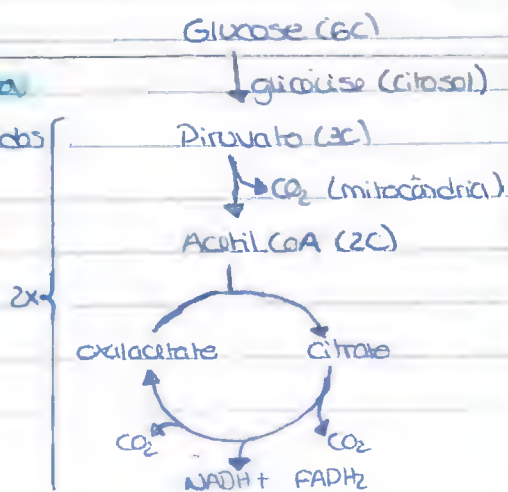 Glucose (6C)
glicólise (citosol)
Piruvato (3C)
CO₂ (mitocôndria)
Acetil CoA (2C)
2x
oxalacetate citrate
CO₂ CO₂
NADH + FADH₂